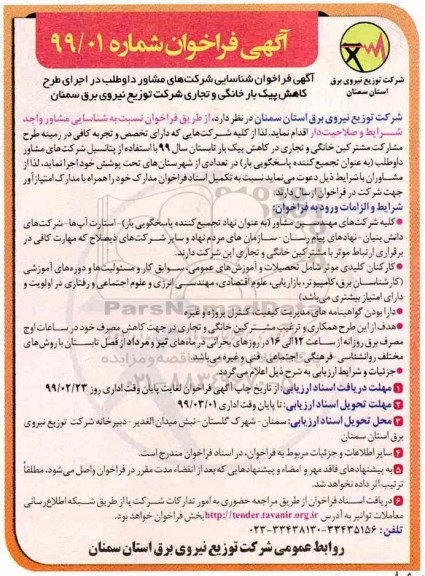 آگهی فراخوان شماره ۹۹/۰۱
شرکت توزیع نیروی برق
استان سمنان
آگهی فراخوان شناسایی شرکت‌های مشاور داوطلب در اجرای طرح
کاهش پیک بار خانگی و تجاری شرکت توزیع نیروی برق سمنان
شرکت توزیع نیروی برق استان سمنان در نظر دارد، از طریق فراخوان نسبت به شناسایی مشاور واجد
شرایط و صلاحیت‌دار اقدام نماید. لذا از کلیه شرکت‌هایی که دارای تخصص و تجربه کافی در زمینه طرح
مشارکت مشترکین خانگی و تجاری در کاهش پیک بار تابستان سال ۹۹ با استفاده از پتانسیل شرکت‌های مشاور
داوطلب (به عنوان تجمیع کننده پاسخگویی بار) در تعدادی از شهرستان‌های تحت پوشش خود اجرا نماید، لذا از
مشاوران با شرایط ذیل دعوت می‌نماید نسبت به تکمیل اسناد فراخوان مدارک خود را همراه با مدارک امتیازآور
جهت شرکت در فراخوان ارسال دارند.
شرایط و الزامات ورود به فراخوان:
• کلیه شرکت‌های مهندسین مشاور (به عنوان نهاد تجمیع کننده پاسخگویی بار)- استارت آپ‌ها- شرکت‌های
دانش بنیان- نهادهای پیام رسان- سازمان های مردم نهاد و سایر شرکت‌های ذیصلاح که مهارت کافی در
برقراری ارتباط موثر با مشترکین خانگی و تجاری این شرکت دارند.
• کارکنان کلیدی موثر شامل تحصیلات و آموزش های عمومی، سوابق کار و مسئولیت‌ها و دوره‌های آموزشی
(کارشناسان برق، کامپیوتر، بازاریابی، علوم اقتصادی، مهندسی انرژی و علوم اجتماعی و رفتاری در اولویت و
دارای امتیاز بیشتری می‌باشد)
• دارا بودن گواهینامه های مدیریت کیفیت، کنترل پروژه و غیره
• هدف از این طرح همکاری و ترغیب مشترکین خانگی و تجاری در جهت کاهش مصرف خود در ساعات اوج
مصرف برق روزانه از ساعت ۱۲ الی ۱۶ در روزهای بحرانی در ماه‌های تیر و مرداد از فصل تابستان با روش‌های
مختلف روانشناسی- فرهنگی- اجتماعی- فنی و غیره می‌باشد.
• جزئیات و شرایط ارزیابی به شرح ذیل اعلام می گردد.
۱ مهلت دریافت اسناد ارزیابی: از تاریخ چاپ آگهی فراخوان لغایت پایان وقت اداری روز ۹۹/۰۲/۲۳
۲ مهلت تحویل اسناد ارزیابی: تا پایان وقت اداری ۹۹/۰۳/۰۱
۳ محل تحویل اسناد ارزیابی: سمنان- شهرک گلستان- نبش میدان الغدیر- دبیرخانه شرکت توزیع نیروی
برق استان سمنان
۴ سایر اطلاعات و جزئیات مربوط به فراخوان، در اسناد فراخوان مندرج است.
۵ به پیشنهادهای فاقد مهر و امضاء و پیشنهادهایی که بعد از انقضاء مدت مقرر در فراخوان واصل می‌شود، مطلقاً
ترتیب اثر داده نخواهد شد.
۶ دریافت اسناد فراخوان از طریق مراجعه حضوری به امور تدارکات شرکت یا از طریق شبکه اطلاع‌رسانی
معاملات توانیر به آدرس http://tender.tavanir.org.ir بخش فراخوان خواهد بود.
تلفن: ۳۳۴۳۵۱۵۶-۰۲۳-۳۳۴۳۸۱۳۰
روابط عمومی شرکت توزیع نیروی برق استان سمنان